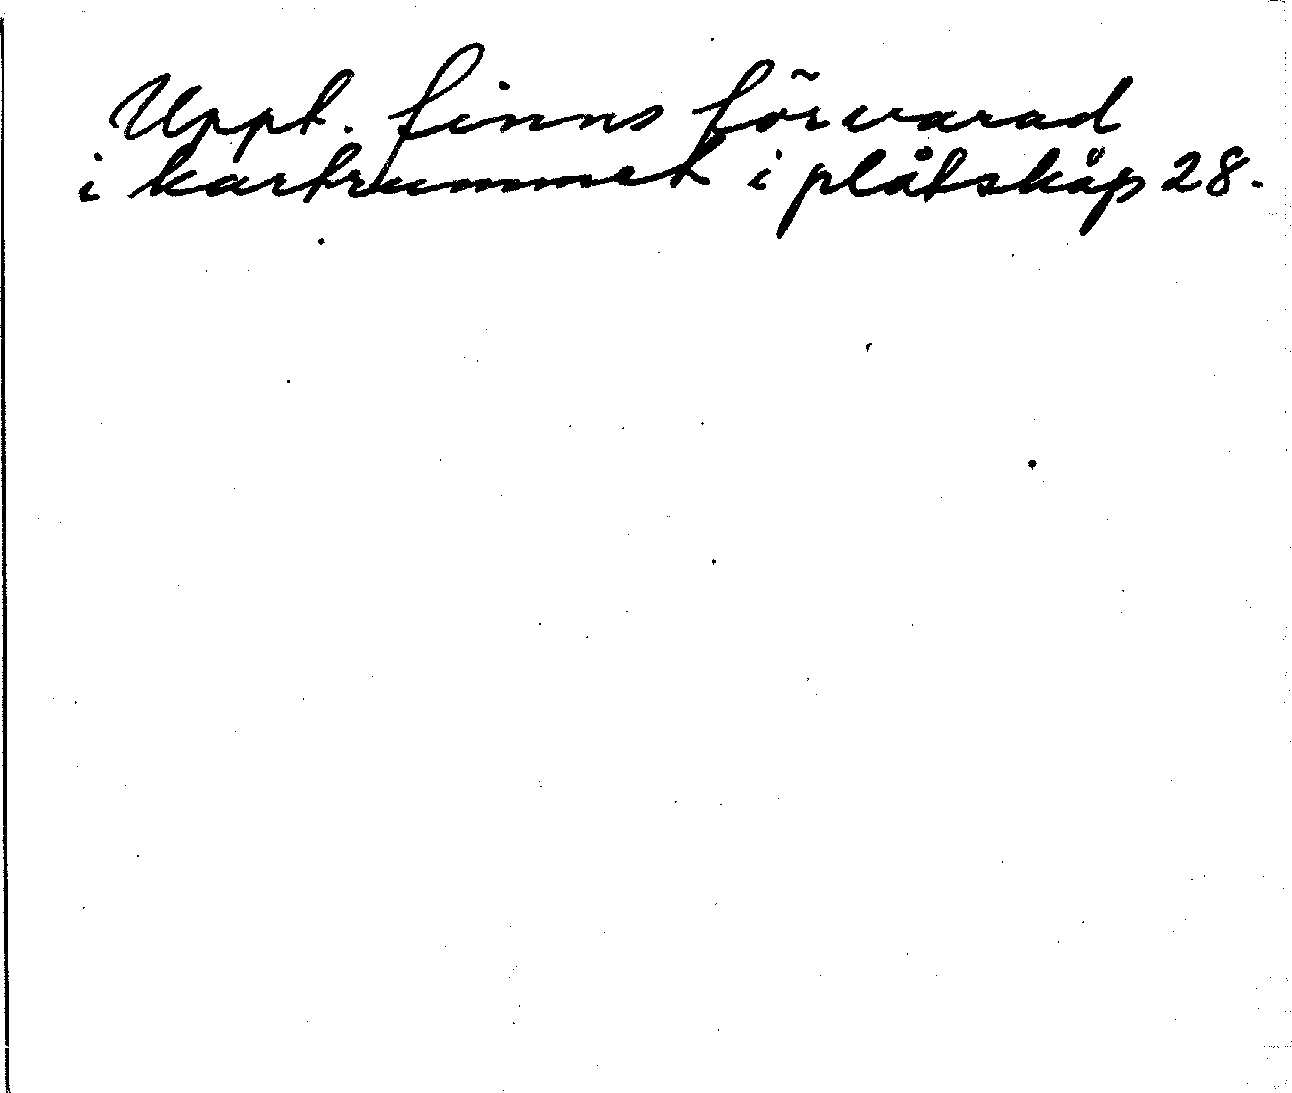 Uppt. finns förvarad
i kartrummet i plåtskåp 28.